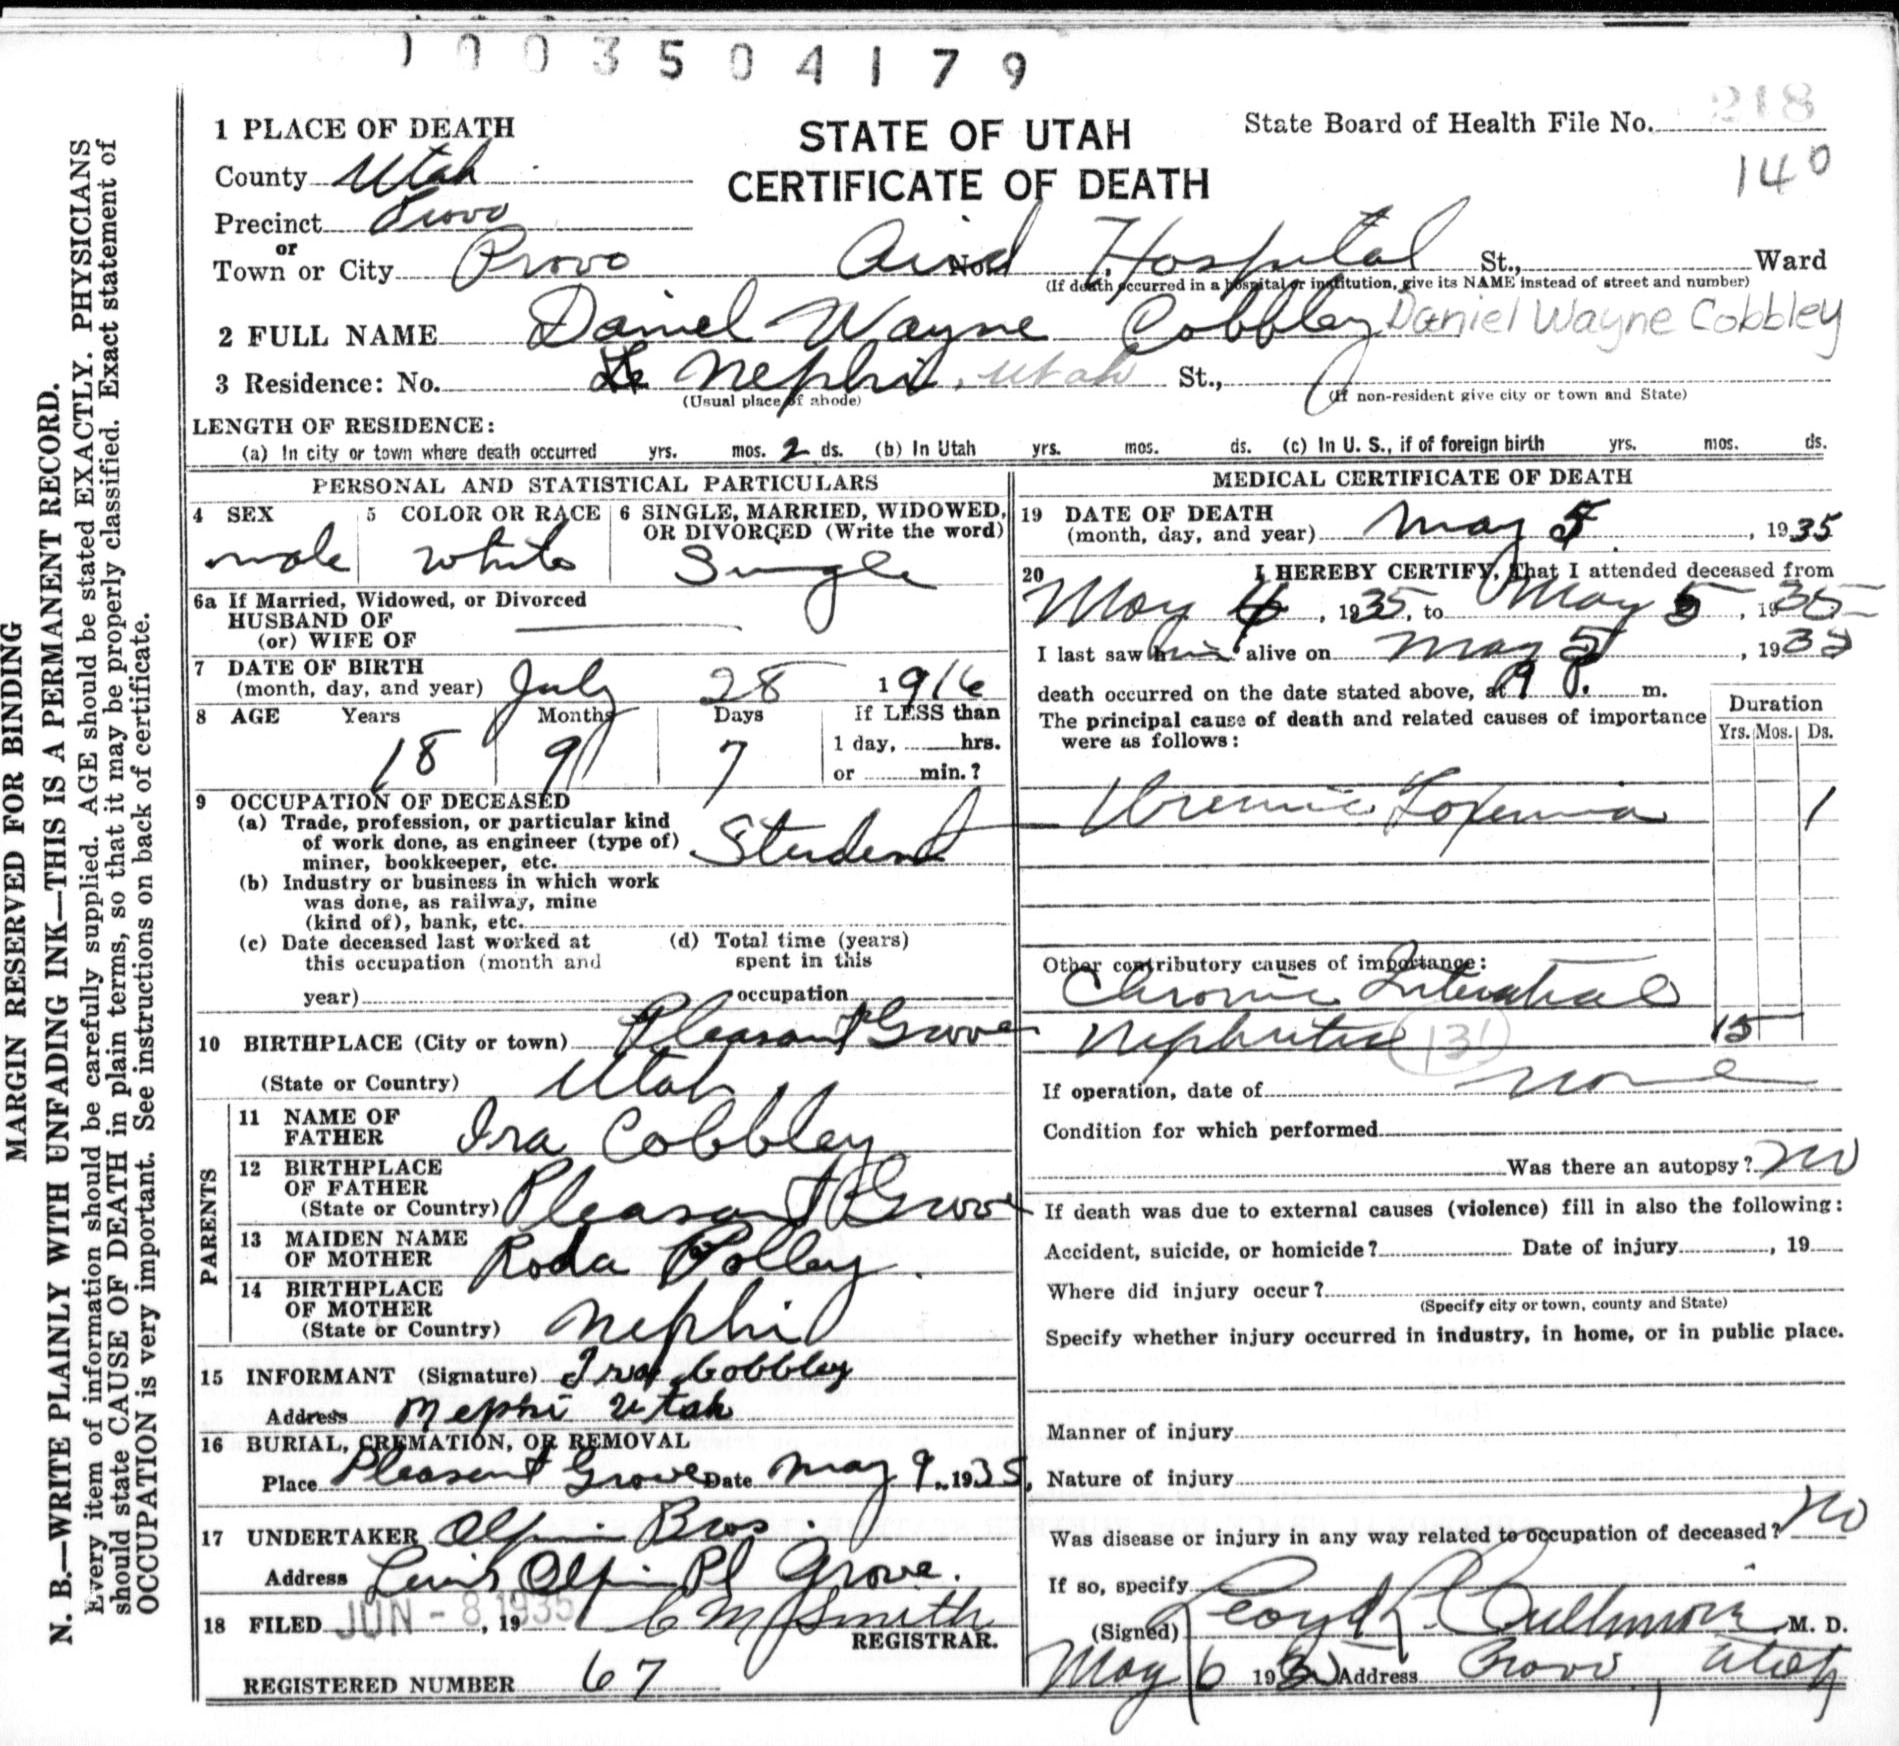 1003504179
1 PLACE OF DEATH
STATE OF UTAH
CERTIFICATE OF DEATH
State Board of Health File No. 218
140
County Utah
Precinct Provo
or
Town or City Provo Aird No. Hospital St., Ward
(If death occurred in a hospital or institution, give its NAME instead of street and number)
2 FULL NAME Daniel Wayne Cobbley Daniel Wayne Cobbley
3 Residence: No. Nephi, Utah St.,
(Usual place of abode) (If non-resident give city or town and State)
LENGTH OF RESIDENCE:
(a) In city or town where death occurred yrs. mos. 2 ds. (b) In Utah yrs. mos. ds. (c) In U. S., if of foreign birth yrs. mos. ds.
PERSONAL AND STATISTICAL PARTICULARS
4 SEX male
5 COLOR OR RACE white
6 SINGLE, MARRIED, WIDOWED, OR DIVORCED (Write the word) Single
6a If Married, Widowed, or Divorced
HUSBAND OF
(or) WIFE OF
7 DATE OF BIRTH
(month, day, and year) July 28 1916
8 AGE Years Months Days If LESS than
18 9 7 1 day, hrs.
or min.?
9 OCCUPATION OF DECEASED
(a) Trade, profession, or particular kind
of work done, as engineer (type of)
miner, bookkeeper, etc. Student
(b) Industry or business in which work
was done, as railway, mine
(kind of), bank, etc.
(c) Date deceased last worked at
this occupation (month and
year)
(d) Total time (years)
spent in this
occupation
10 BIRTHPLACE (City or town) Pleasant Grove
(State or Country) Utah
PARENTS
11 NAME OF
FATHER Ira Cobbley
12 BIRTHPLACE
OF FATHER
(State or Country) Pleasant Grove
13 MAIDEN NAME
OF MOTHER Roda Polley
14 BIRTHPLACE
OF MOTHER
(State or Country) Nephi
15 INFORMANT (Signature) Ira Cobbley
Address Nephi Utah
16 BURIAL, CREMATION, OR REMOVAL
Place Pleasant Grove Date May 9, 1935,
17 UNDERTAKER Olpin Bros.
Address Olpin Pl Grove.
18 FILED JUN - 8 1935, 19 C M Smith
REGISTRAR.
REGISTERED NUMBER 67
MEDICAL CERTIFICATE OF DEATH
19 DATE OF DEATH
(month, day, and year) May 5, 1935
20 I HEREBY CERTIFY, That I attended deceased from
May 4, 1935, to May 5, 1935
I last saw him alive on May 5, 1935
death occurred on the date stated above, at 9 P. m.
The principal cause of death and related causes of importance
were as follows:
Duration
Yrs. Mos. Ds.
Uremic Toxemia 1
Other contributory causes of importance:
Chronic Interstitial
Nephritis 131 15
If operation, date of none
Condition for which performed
Was there an autopsy? no
If death was due to external causes (violence) fill in also the following:
Accident, suicide, or homicide? Date of injury, 19
Where did injury occur?
(Specify city or town, county and State)
Specify whether injury occurred in industry, in home, or in public place.
Manner of injury
Nature of injury
Was disease or injury in any way related to occupation of deceased? no
If so, specify
(Signed) Lloyd L. Cullimore M. D.
May 6 193 Address Provo, Utah
MARGIN RESERVED FOR BINDING
N. B.—WRITE PLAINLY WITH UNFADING INK—THIS IS A PERMANENT RECORD.
Every item of information should be carefully supplied. AGE should be stated EXACTLY. PHYSICIANS
should state CAUSE OF DEATH in plain terms, so that it may be properly classified. Exact statement of
OCCUPATION is very important. See instructions on back of certificate.